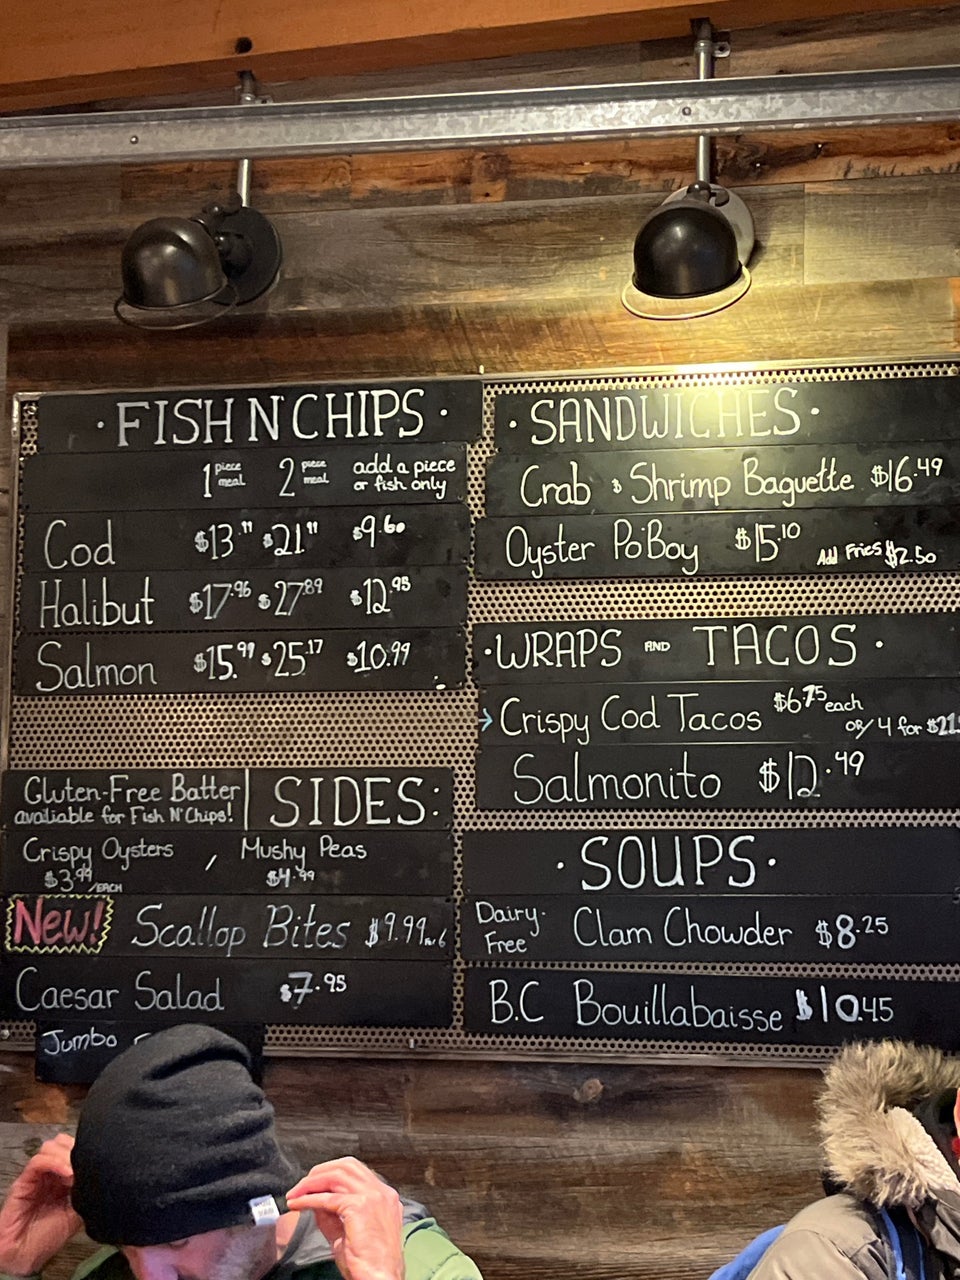 · FISH N' CHIPS ·
1 piece meal 2 piece meal add a piece or fish only
Cod $13.11 $21.11 $9.60
Halibut $17.96 $27.89 $12.95
Salmon $15.99 $25.17 $10.99
Gluten-Free Batter
avaliable for Fish N' Chips!
SIDES:
Crispy Oysters / Mushy Peas
$3.99/EACH $4.99
New! Scallop Bites $9.99 6
Caesar Salad $7.95
Jumbo
· SANDWICHES ·
Crab & Shrimp Baguette $16.49
Oyster Po'Boy $15.10 Add Fries $2.50
· WRAPS AND TACOS ·
→ Crispy Cod Tacos $6.75 each
OR/ 4 for
Salmonito $12.49
· SOUPS ·
Dairy-Free Clam Chowder $8.25
B.C Bouillabaisse $10.45